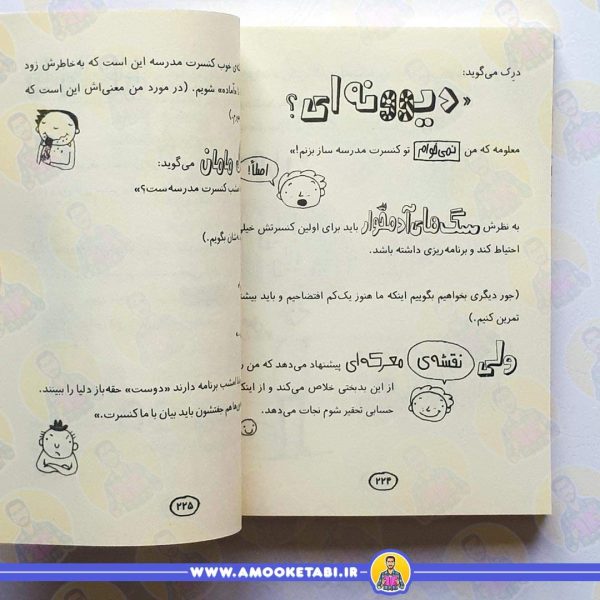 درک می‌گوید:
« دیوونه‌ای؟
معلومه که من نمی‌خوام تو کنسرت مدرسه ساز بزنم!»
اصلاً!
به نظرش سگ‌های آدمخوار باید برای اولین کنسرتش خیلی
احتیاط کند و برنامه‌ریزی داشته باشد.
(جور دیگری بخواهیم بگوییم اینکه ما هنوز یک‌کم افتضاحیم و باید بیشتر
تمرین کنیم.)
ولی نقشه‌ی معرکه‌ای پیشنهاد می‌دهد که من
از این بدبختی خلاص می‌کند و از اینکه
حسابی تحقیر شوم نجات می‌دهد.
۲۲۴
خوب کنسرت مدرسه این است که به‌خاطرش زود
شویم. (در مورد من معنی‌اش این است که
مامان می‌گوید:
کنسرت مدرسه‌ست؟»
بگویم.)
امشب برنامه دارند «دوست» حقه‌باز دلیا را ببینند.
هم جفتشون باید بیان با ما کنسرت.»
۲۲۵
WWW.AMOOKETABI.IR